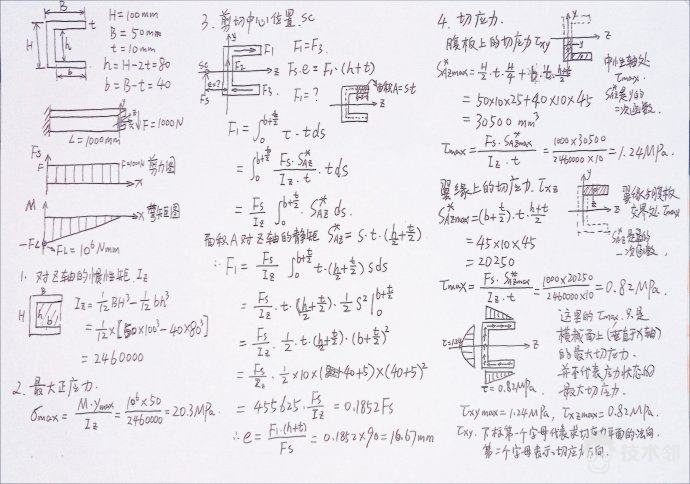 B
H
h
t
b
H=100mm
B=50mm
t=10mm
h=H-2t=80
b=B-t=40
y
z
F=1000N
L=1000mm
Fs
F
F=1000N 剪力图
x
M
x 弯矩图
-FL
FL=10⁶Nmm
1. 对Z轴的惯性矩 Iz
B
H
h
b
Iz=1/12 BH³-1/12 bh³
=1/12×[50×100³-40×80³]
=2460000
2. 最大正应力.
σmax=M·ymax/Iz=10⁶×50/2460000=20.3MPa.
3. 剪切中心位置 SC
y
F1
F2
SC
z
e=?
Fs
F3
F1=F3.
Fs·e=F1·(h+t)
F1=?
面积A=st
F1=∫₀^(b+t/2) τ·tds
=∫₀^(b+t/2) Fs·S*Az/(Iz·t)·tds
=Fs/Iz ∫₀^(b+t/2) S*Az ds.
面积A对Z轴的静矩 S*Az=s·t·(h/2+t/2)
∴F1=Fs/Iz ∫₀^(b+t/2) t·(h/2+t/2)sds
=Fs/Iz·t·(h/2+t/2)·1/2 S²|₀^(b+t/2)
=Fs/Iz·1/2·t·(h/2+t/2)·(b+t/2)²
=Fs/Iz·1/2×10×(40+5)×(40+5)²
=455625·Fs/Iz=0.1852Fs
∴e=F1·(h+t)/Fs=0.1852×90=16.67mm
4. 切应力.
腹板上的切应力τxy
y
z
S*Azmax=H/2·t·H/4+b·t·(h+t)/2
=50×10×25+40×10×45
=30500mm³
中性轴处
τmax.
S*Az是y的
二次函数.
τmax=Fs·S*Azmax/(Iz·t)=1000×30500/(2460000×10)=1.24MPa.
翼缘上的切应力τxz
y
z
S*Azmax=(b+t/2)·t·(h+t)/2
=45×10×45
=20250
翼缘与腹板
交界处τmax
S*Az是z的
一次函数.
τmax=Fs·S*Azmax/(Iz·t)=1000×20250/(2460000×10)=0.82MPa.
τ=1.24
z
τ=0.82MPa.
这里的τmax只是
横截面上(垂直于X轴)
的最大切应力.
并不代表应力状态的
最大切应力.
τxymax=1.24MPa, τxzmax=0.82MPa.
τxy. 下标第一个字母代表求切应力平面的法向.
第二个字母表示切应力方向.
技术邻